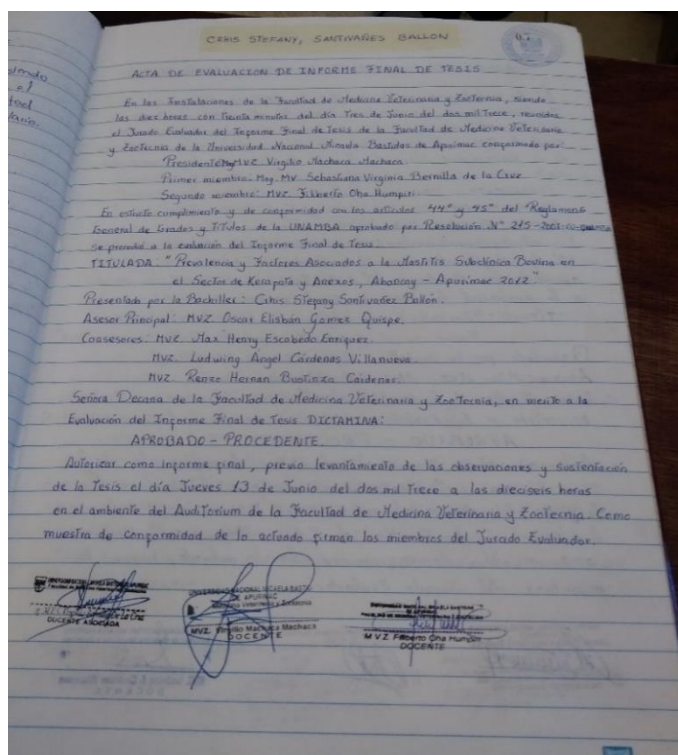 CRHIS STEFANY, SANTIVAÑES BALLON
ACTA DE EVALUACION DE INFORME FINAL DE TESIS
En las Instalaciones de la Facultad de Medicina Veterinaria y Zootecnia, siendo
las diez horas con Treinta minutos del día Tres de Junio del dos mil Trece, reunidos
el Jurado Evaluador del Informe Final de Tesis de la Facultad de Medicina Veterinaria
y Zootecnia de la Universidad Nacional Micaela Bastidas de Apurímac conformado por:
Presidente: Mvz Virgilio Machaca Machaca
Primer miembro: Mag. MV Sebastiana Virginia Bernilla de la Cruz
Segundo miembro: MVZ. Filiberto Oha Humpiri.
En estricto cumplimiento y de conformidad con los artículos 44° y 45° del Reglamento
General de Grados y Títulos de la UNAMBA aprobado por Resolución N° 215-
se procedió a la evaluación del Informe Final de Tesis.
TITULADA: "Prevalencia y Factores Asociados a la Mastitis Subclínica Bovina en
el Sector de Kerapata y Anexos, Abancay - Apurímac 2012"
Presentado por la Bachiller: Crhis Stefany Santivañez Ballón.
Asesor Principal: MVZ. Oscar Elisbán Gomez Quispe.
Coasesores: MVZ. Max Henry Escobedo Enriquez.
MVZ. Ludwing Angel Cárdenas Villanueva.
MVZ. Renzo Hernan Bustinza Cárdenas.
Señora Decana de la Facultad de Medicina Veterinaria y Zootecnia, en merito a la
Evaluación del Informe Final de Tesis DICTAMINA:
APROBADO - PROCEDENTE.
Autorizar como informe final, previo levantamiento de las observaciones y sustentación
de la Tesis el día Jueves 13 de Junio del dos mil Trece a las dieciseis horas
en el ambiente del Auditorium de la Facultad de Medicina Veterinaria y Zootecnia. Como
muestra de conformidad de lo actuado firman los miembros del Jurado Evaluador.
DOCENTE ASOCIADA
MVZ. Virgilio Machaca Machaca
DOCENTE
MVZ Filiberto Oha Humpiri
DOCENTE